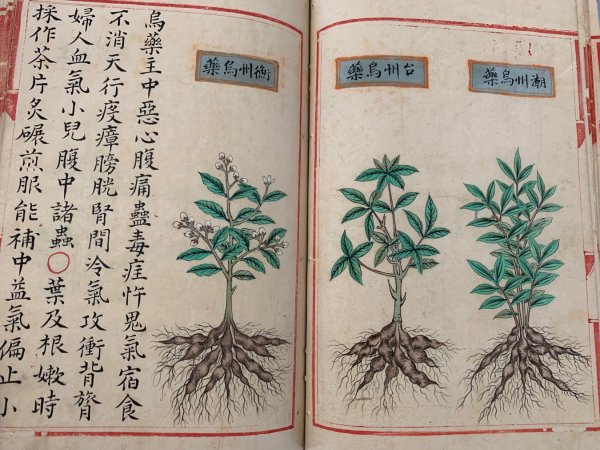 潮州烏藥
台州烏藥
衡州烏藥
烏藥主中惡心腹痛蠱毒疰忤鬼氣宿食
不消天行疫瘴膀胱腎間冷氣攻衝背膂
婦人血氣小兒腹中諸蟲○葉及根嫰時
採作茶片炙碾煎服能補中益氣偏止小